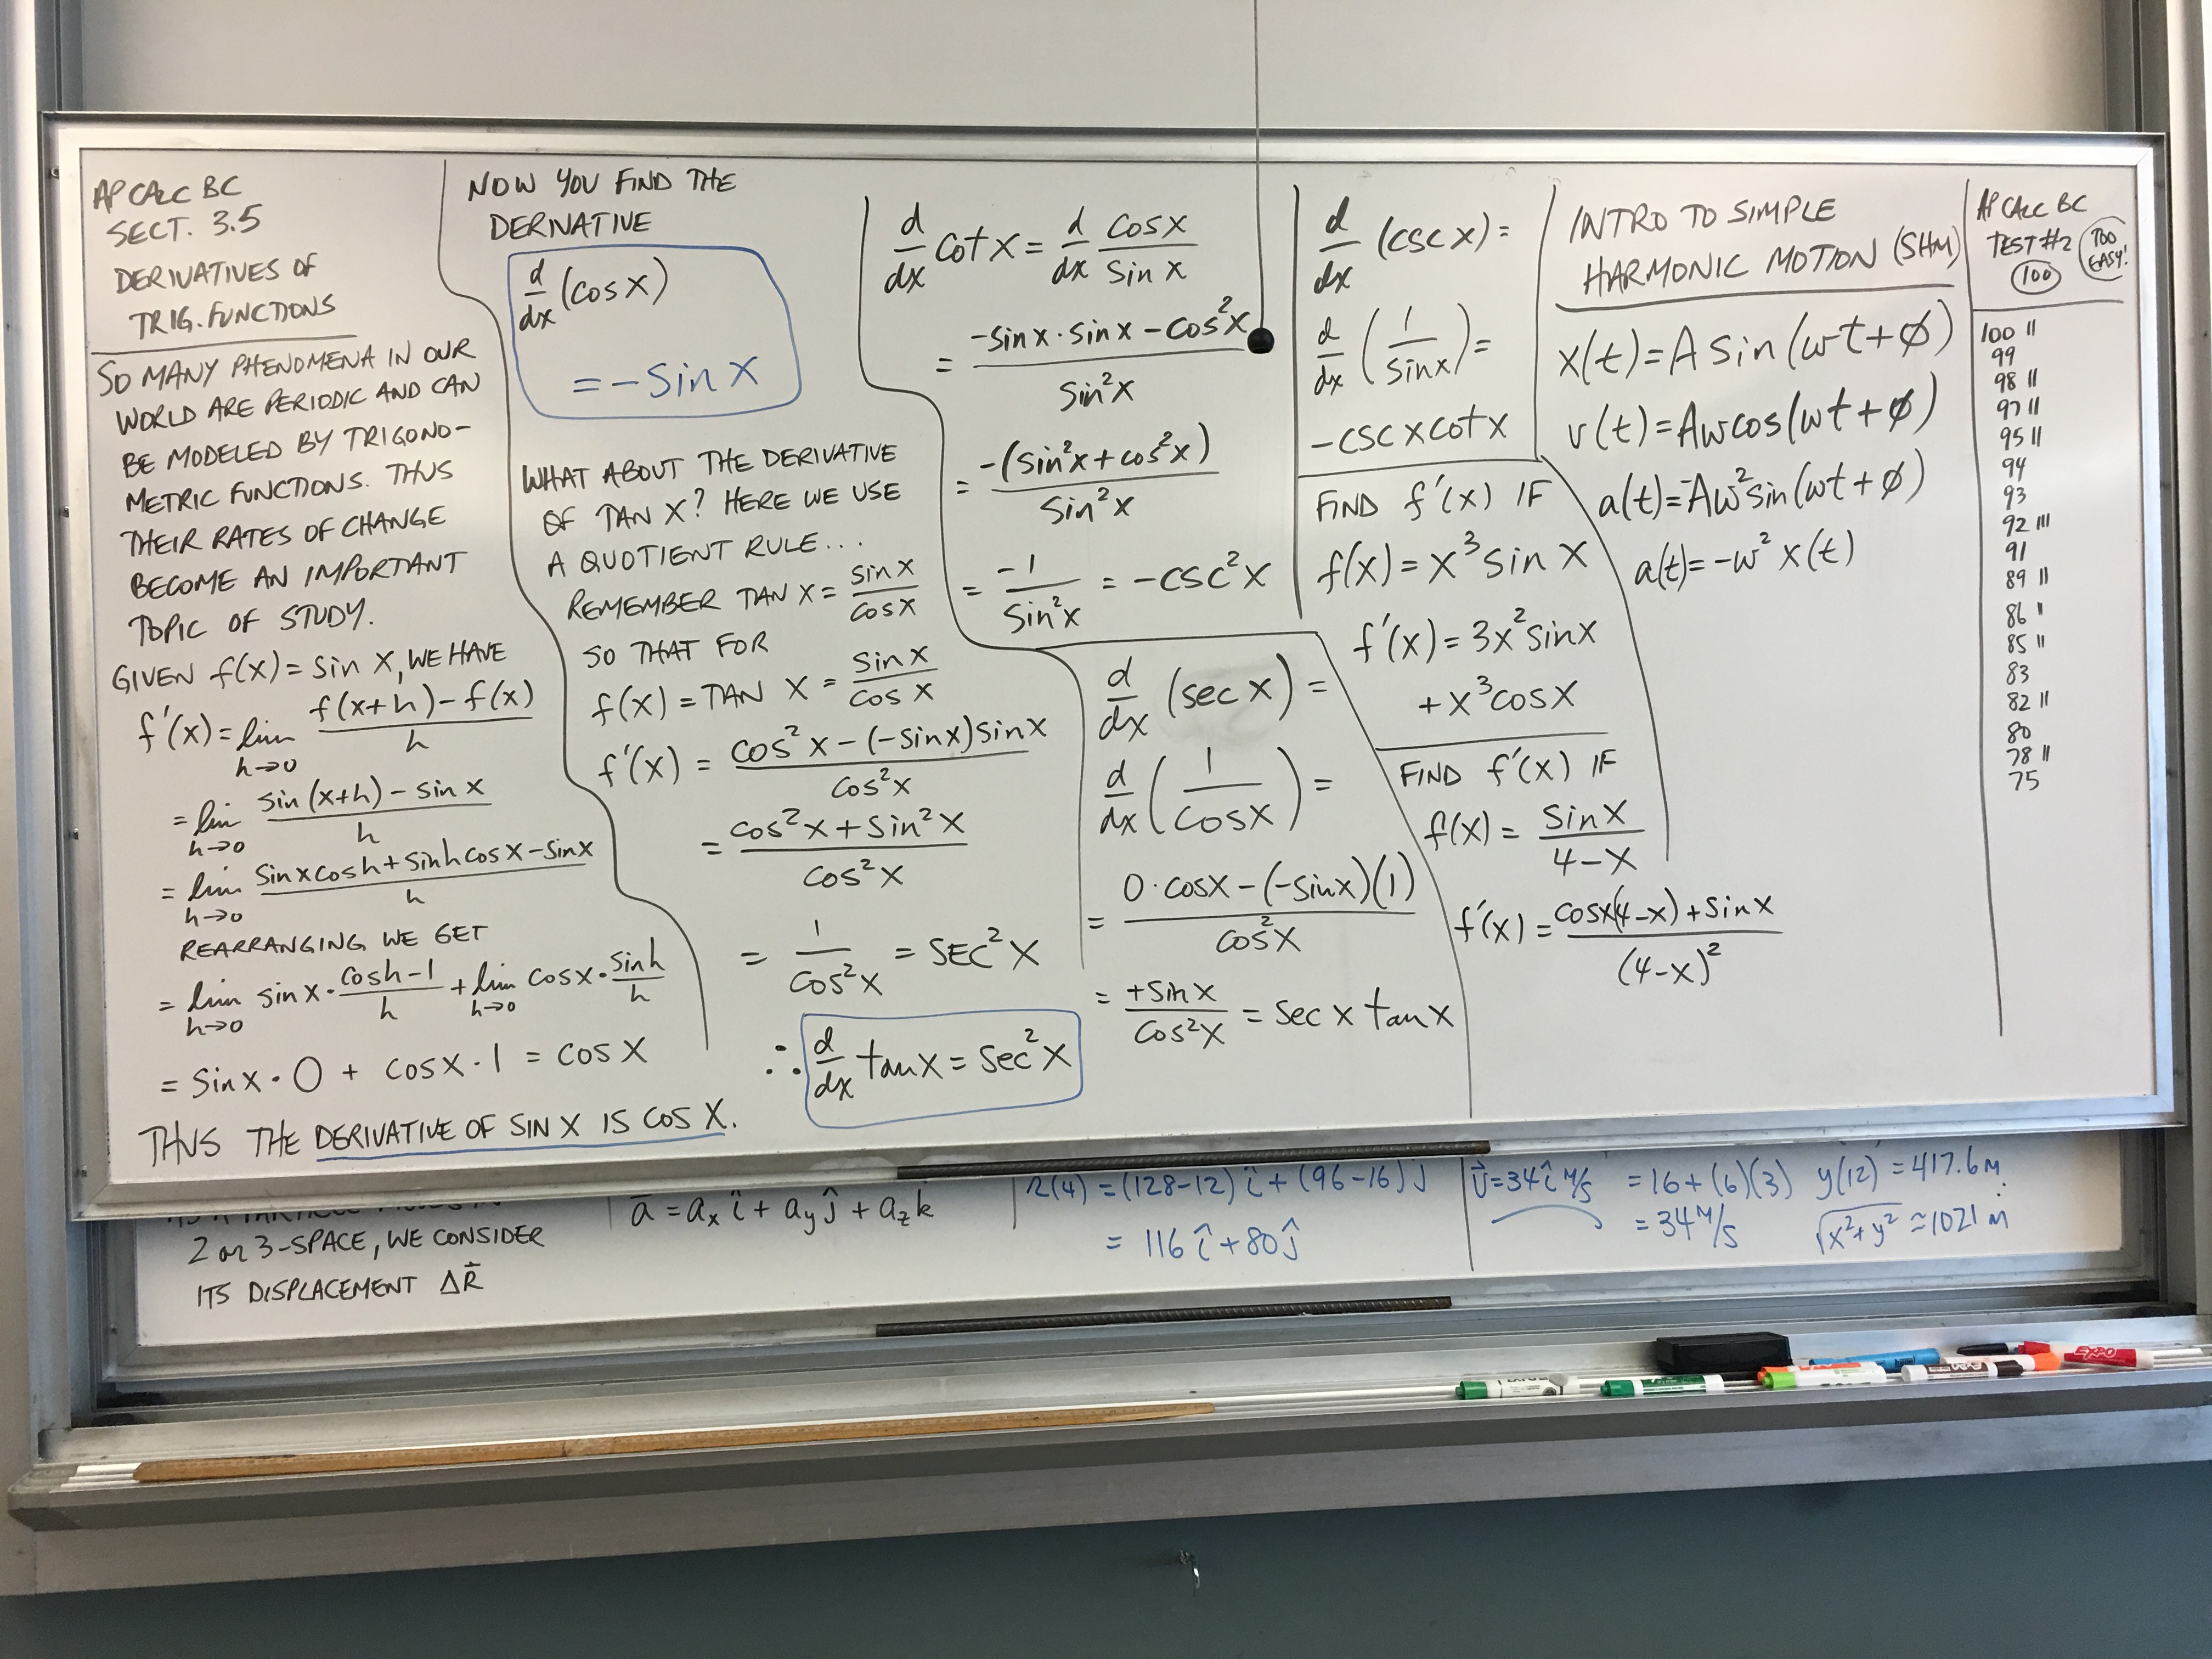 AP CALC BC
SECT. 3.5
DERIVATIVES OF
TRIG. FUNCTIONS
SO MANY PHENOMENA IN OUR
WORLD ARE PERIODIC AND CAN
BE MODELED BY TRIGONO-
METRIC FUNCTIONS. THUS
THEIR RATES OF CHANGE
BECOME AN IMPORTANT
TOPIC OF STUDY.
GIVEN f(x) = sin x, WE HAVE
f'(x) = lim h→0 (f(x+h) - f(x))/h
= lim h→0 (sin(x+h) - sin x)/h
= lim h→0 (sin x cos h + sin h cos x - sin x)/h
REARRANGING WE GET
= lim h→0 sin x · (cos h - 1)/h + lim h→0 cos x · (sin h)/h
= sin x · 0 + cos x · 1 = cos x
THUS THE DERIVATIVE OF SIN X IS COS X.
NOW YOU FIND THE
DERIVATIVE
d/dx (cos x)
= -sin x
WHAT ABOUT THE DERIVATIVE
OF TAN X? HERE WE USE
A QUOTIENT RULE...
REMEMBER TAN X = sin x/cos x
SO THAT FOR
f(x) = TAN X = sin x/cos x
f'(x) = (cos²x - (-sin x) sin x)/cos²x
= (cos²x + sin²x)/cos²x
= 1/cos²x = SEC²X
∴ d/dx tan x = sec²x
d/dx cot x = d/dx cos x/sin x
= (-sin x · sin x - cos²x)/sin²x
= -(sin²x + cos²x)/sin²x
= -1/sin²x = -csc²x
d/dx (sec x) =
d/dx (1/cos x) =
= (0 · cos x - (-sin x)(1))/cos²x
= +sin x/cos²x = sec x tan x
d/dx (csc x) =
d/dx (1/sin x) =
-csc x cot x
FIND f'(x) IF
f(x) = x³ sin x
f'(x) = 3x² sin x
+ x³ cos x
FIND f'(x) IF
f(x) = sin x/(4-x)
f'(x) = (cos x(4-x) + sin x)/(4-x)²
INTRO TO SIMPLE
HARMONIC MOTION (SHM)
x(t) = A sin(ωt + φ)
v(t) = Aω cos(ωt + φ)
a(t) = -Aω² sin(ωt + φ)
a(t) = -ω² x(t)
AP CALC BC
TEST #2
100
TOO
EASY!
100 11
99
98 11
97 11
95 11
94
93
92 111
91
89 11
86 11
85 11
83
82 11
80
78 11
75
2 or 3-SPACE, WE CONSIDER
ITS DISPLACEMENT ΔR⃗
a⃗ = aₓ î + a_y ĵ + a_z k̂
r(4) = (128-12) î + (96-16) ĵ
= 116 î + 80 ĵ
v⃗ = 34 î m/s
= 16 + (6)(3)
= 34 m/s
y(12) = 417.6 m
√(x²+y²) ≈ 1021 m